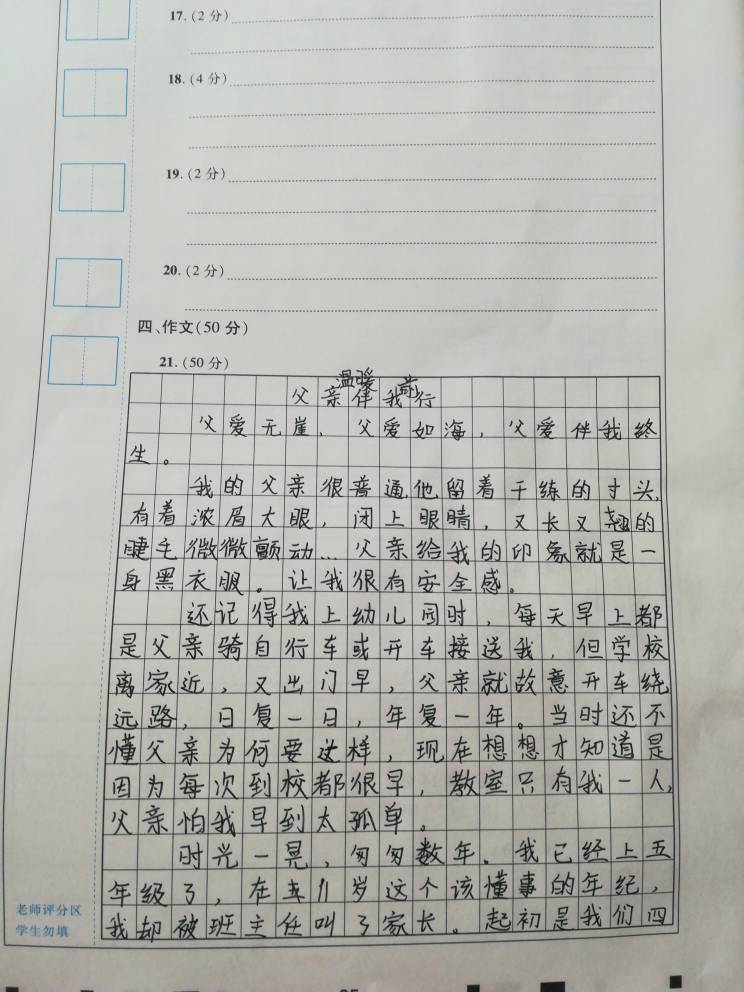 17.(2 分)
18.(4 分)
19.(2 分)
20.(2 分)
四、作文(50 分)
21.(50 分)
温暖 前
父亲伴我行
父爱无崖，父爱如海，父爱伴我终
生。
我的父亲很普通,他留着干练的寸头,
有着浓眉大眼，闭上眼睛，又长又翘的
睫毛微微颤动...父亲给我的印象就是一
身黑衣服。让我很有安全感。
还记得我上幼儿园时，每天早上都
是父亲骑自行车或开车接送我，但学校
离家近，又出门早，父亲就故意开车绕
远路，日复一日，年复一年。当时还不
懂父亲为何要这样，现在想想才知道是
因为每次到校都很早，教室只有我一人,
父亲怕我早到太孤单。
时光一晃，匆匆数年。我已经上五
年级了，在五11岁这个该懂事的年纪，
我却被班主任叫了家长。起初是我们四
老师评分区
学生勿填